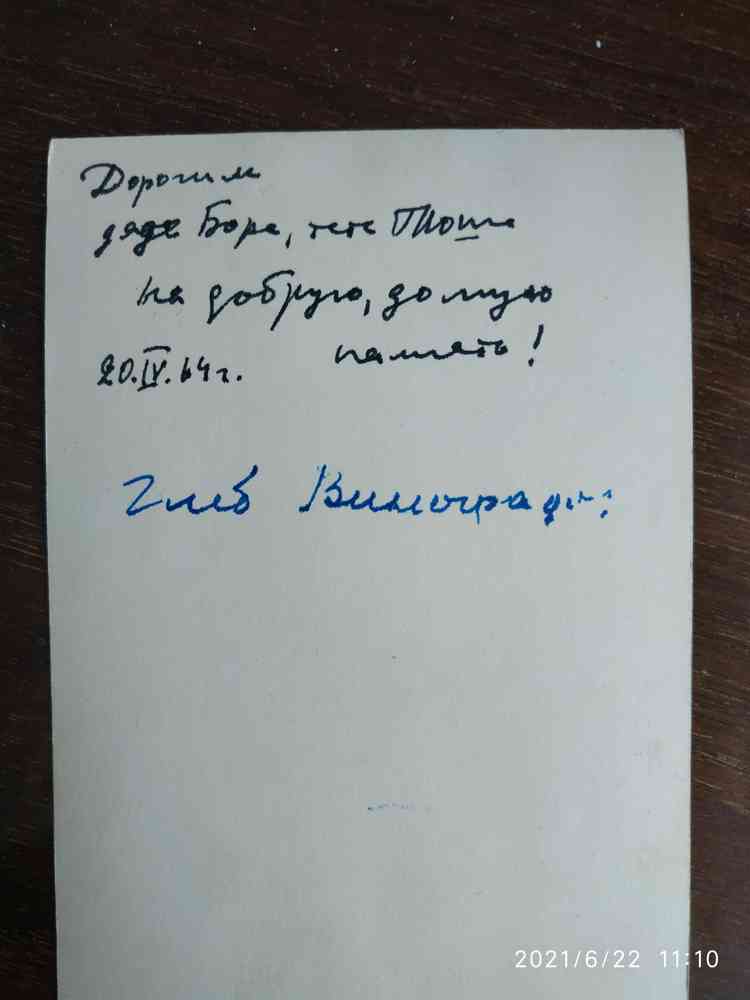 Дорогим
дяде Боре, тёте Тоше
на добрую, долгую
память!
20.IV.64г.
Глеб Виноградов
2021/6/22 11:10